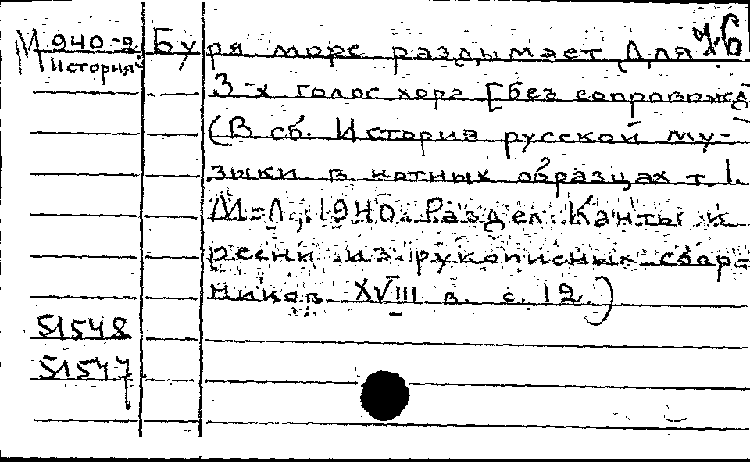 М 940-2 Буря море раздымает Для 76
История 3-х голос хора [без сопровожд
(В сб. История русской му-
зыки в нотных образцах т. 1.
М-Л, 1940. Раздел: Канты и
песни из рукописных сбор-
ников XVIII в. с. 12.)
51548
51547